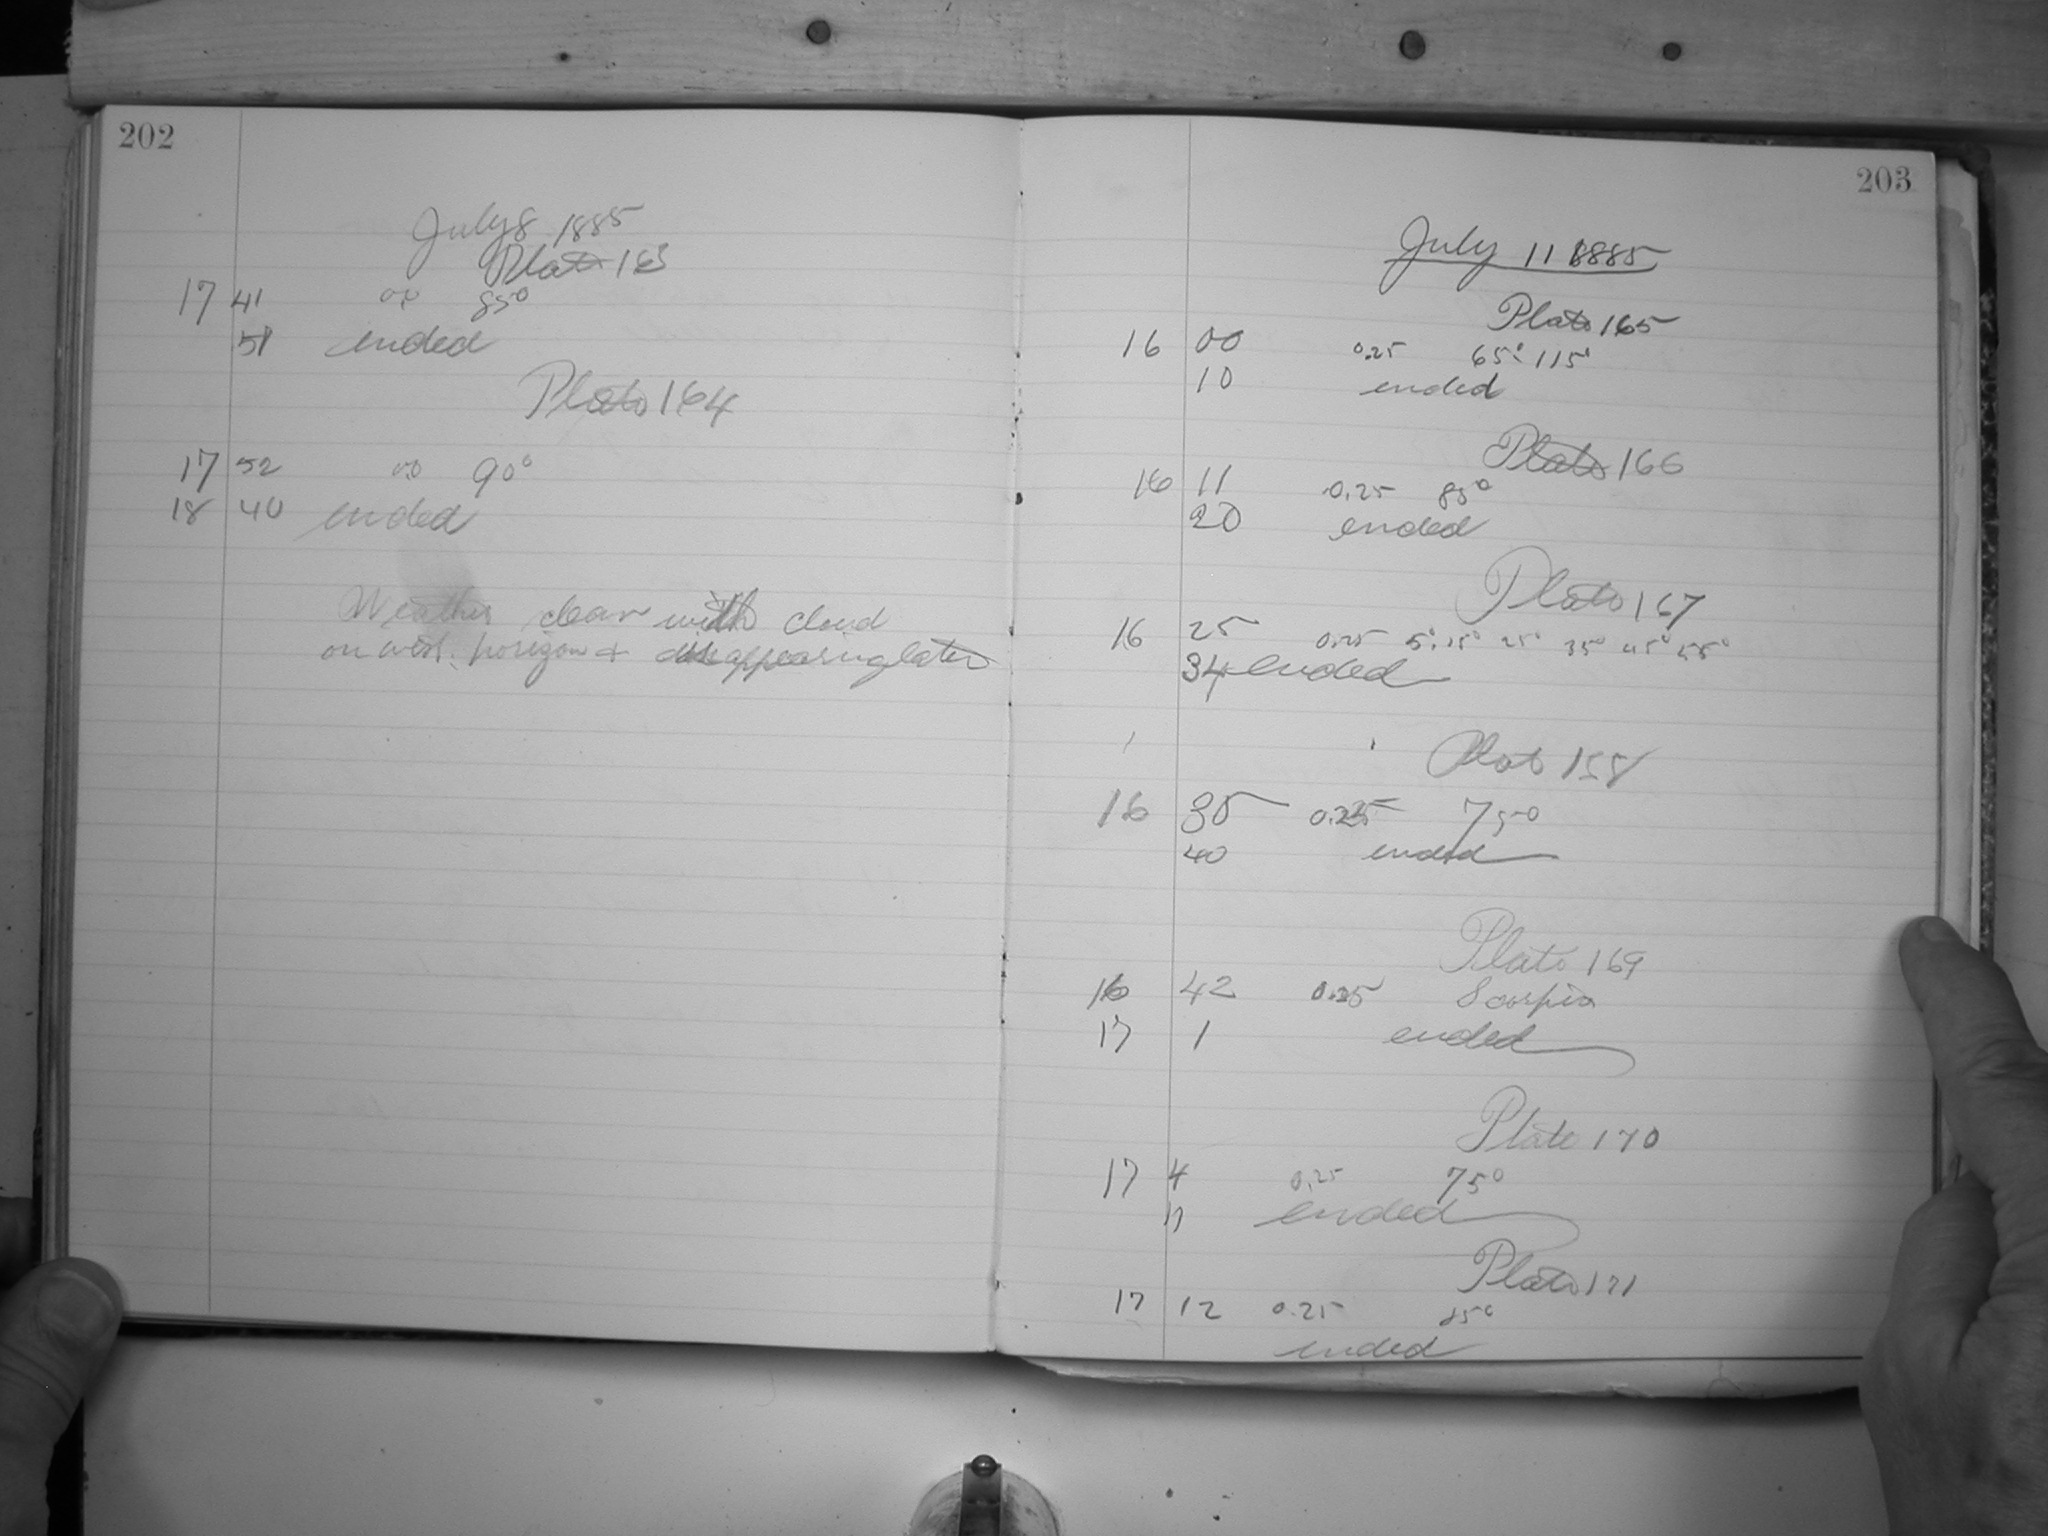 202
July 8 1885
Plate 163
17 41 85°
51 ended
Plate 164
17 52 90°
18 40 ended
Weather clear with cloud
on west. horizon + disappearing later
203
July 11 1885
Plate 165
16 00 0.25 65° 115°
10 ended
Plate 166
16 11 0.25 85°
20 ended
Plate 167
16 25 0.25 5° 15° 25° 35° 45° 55°
34 ended
Plate 158
16 35 0.25 75°
40 ended
Plate 169
16 42 0.25 Scorpio
17 1 ended
Plate 170
17 4 0.25 75°
11 ended
Plate 171
17 12 0.25 85°
ended